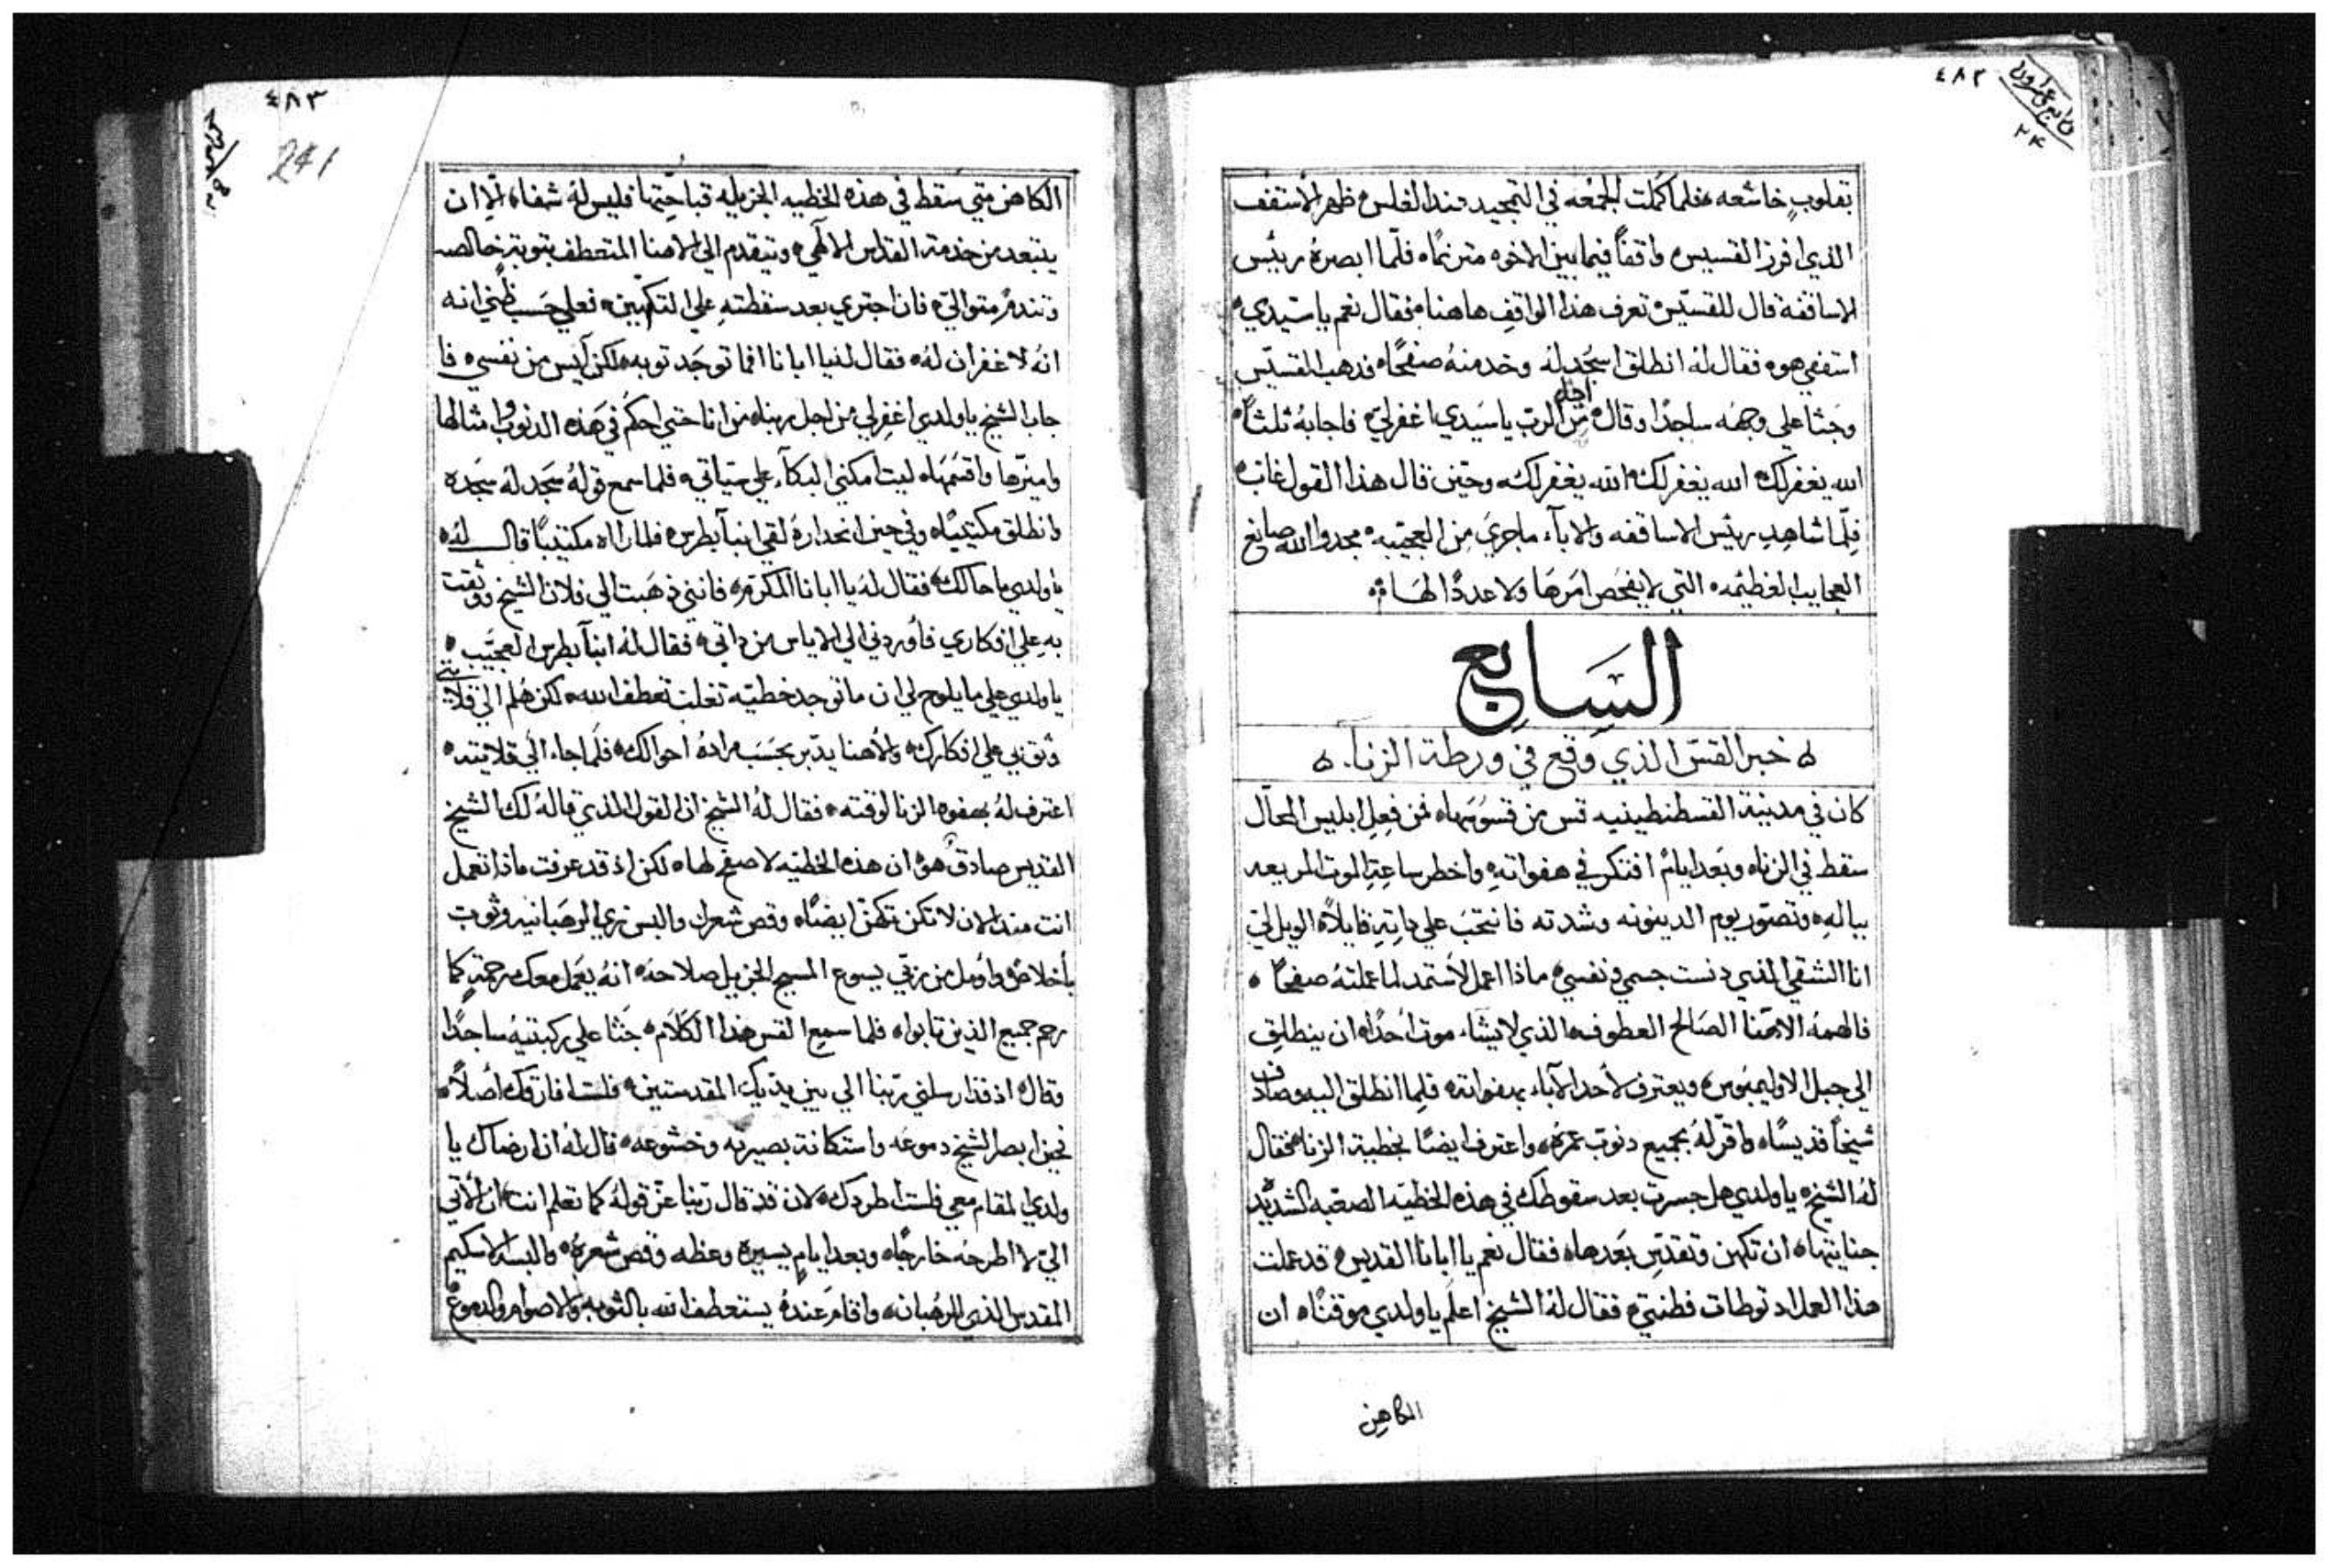 ٤٨٢
٢٤
بقلوبٍ خاشعه، فلما كملت الجمعه في التمجيد منذ الغلس، ظهر الاسقف
الذي افرز القسيس، واقفاً فيما بين الاخوه مترنمًا، فلمّا ابصرهُ رييس
الاساقفه قال للقسيس، تعرف هذا الواقف هاهنا، فقال نعم يا سيدي،
اسقفي هو، فقال لهُ انطلق اسجد لهُ وخد منهُ صفحًا، فدهب القسيس
وجثا علي وجهه ساجدًا، وقال، من اجل الرب يا سيدي اغفر لي، فاجابهُ ثلثاً،
الله يغفر لك، الله يغفر لك، الله يغفر لك، وحين قال هذا القول غاب،
فلمّا شاهد رييس الاساقفه والابآء ماجري من العجيبه، مجدوا الله صانع
العجايب العظيمه، التي لا يفحص امرها ولا عددًا لها،
السابع
خبر القس الذي وقع في ورطة الزنا
كان في مدينة القسطنطينيه قس من قسوسها، فمن فعل ابليس المحال
سقط في الزنا، وبعد ايام افتكر في هفواتهِ، واخطر ساعة الموت المريعه
ببالهِ، وتصور يوم الدينونه وشدته فانتحب علي داتهِ قايلاً، الويل لي
انا الشقي الذي دنست جسمي ونفسي، ماذا اعمل لأستمد لما عملتهُ صفحًا،
فالهمهُ الاهنا الصالح العطوف، الذي لا يشاء موت احدًا، ان ينطلق
الي جبل الاوليمبوس، ويعترف لأحد الآباء بهفواته، فلما انطلق اليه وصادف
شيخاً قديسًا، واقرّ لهُ بجميع دنوب عمرهُ، واعترف ايضًا بخطية الزنا، فقال
لهُ الشيخ، يا ولدي هل جسرت بعد سقوطك في هذه الخطيه الصعبه الشديد
جنايتها، ان تكهن وتقدس بعدها، فقال نعم يا ابانا القديس، قد عملت
هذا العمل اد توطات فطنتي، فقال لهُ الشيخ اعلم يا ولدي موقنًا، ان
الكاهن
٤٨٣
241
الكاهن متي سقط في هذه الخطيه الجزيله قباحتها فليس لهُ شفاء، الّا ان
يبتعد من خدمة القداس الالهي، ويتقدم الي الاهنا المتعطف بتوبة خالصه
وتندمٍ متوالي، فان اجتري بعد سقطتهِ علي التكهين، فعلي حسب ظني انه
انهُ لا غفران لهُ، فقال لنا يا ابانا افما توجد توبه، لكن آيس من نفسي، فا
جاب الشيخ يا ولدي اغفر لي من اجل ربنا، من انا حتي احكم في هذه الدنوب وامثالها
واميزها واقسمها، ليت امكنني البكآء علي سياتي، فلما سمع قولهُ سجد لهُ سجده
وانطلق مكتيبًا، وفي حين انحدارهُ لقي انبآ بطرس، فلما راه مكتيبًا قال لهُ،
يا ولدي ما حالك، فقال لهُ يا ابانا المكرم، فانني ذهبت الي فلان الشيخ ووثقت
به علي افكاري فأوردني الي الاياس من داتي، فقال لهُ انبآ بطرس العجيب،
يا ولدي علي ما يلوح لي ان ما توجد خطيه تغلب تعطف الله، لكن هلم الي قلايتي
وثق بي علي افكارك، والاهنا يدبر بحسب مرادهُ احوالك، فلما جاء الي قلايته،
اعترف لهُ بهفوه الزنا لوقته، فقال لهُ الشيخ ان القول الذي قالهُ لك الشيخ
القديس صادق هو، ان هذه الخطيه لا صفح لها، لكن اذ قد عرفت ماذا تعمل
انت منذ الان لا تكن تكهن ايضًا، وقص شعرك والبس زي الرهبانيه وتوب
بأخلاص، واومل من ربي يسوع المسيح الجزيل صلاحهُ، انهُ يعمل معك رحمةٍ كما
رحم جميع الذين تابوا، فلما سمع القس هذا الكلام، جثا علي ركبتيهُ ساجدًا
وقال، اذ قد ارسلني ربنا الي بين يديك المقدستين، فلست افارقك أصلاً،
فحين ابصر الشيخ دموعه واستكانة بصيرته وخشوعه، قال لهُ ان ارضاك يا
ولدي المقام معي فلست اطردك، لان قد قال ربنا عز قولهُ كما تعلم انت، ان الأتي
الي لا اطرحهُ خارجًا، وبعد ايامٍ يسيره وعظه وقص شعرهُ، والبسه الاسكيم
المقدس الذي للرهبانه، واقام عندهُ يستعطف الله بالتوبه والاصوام والدموع